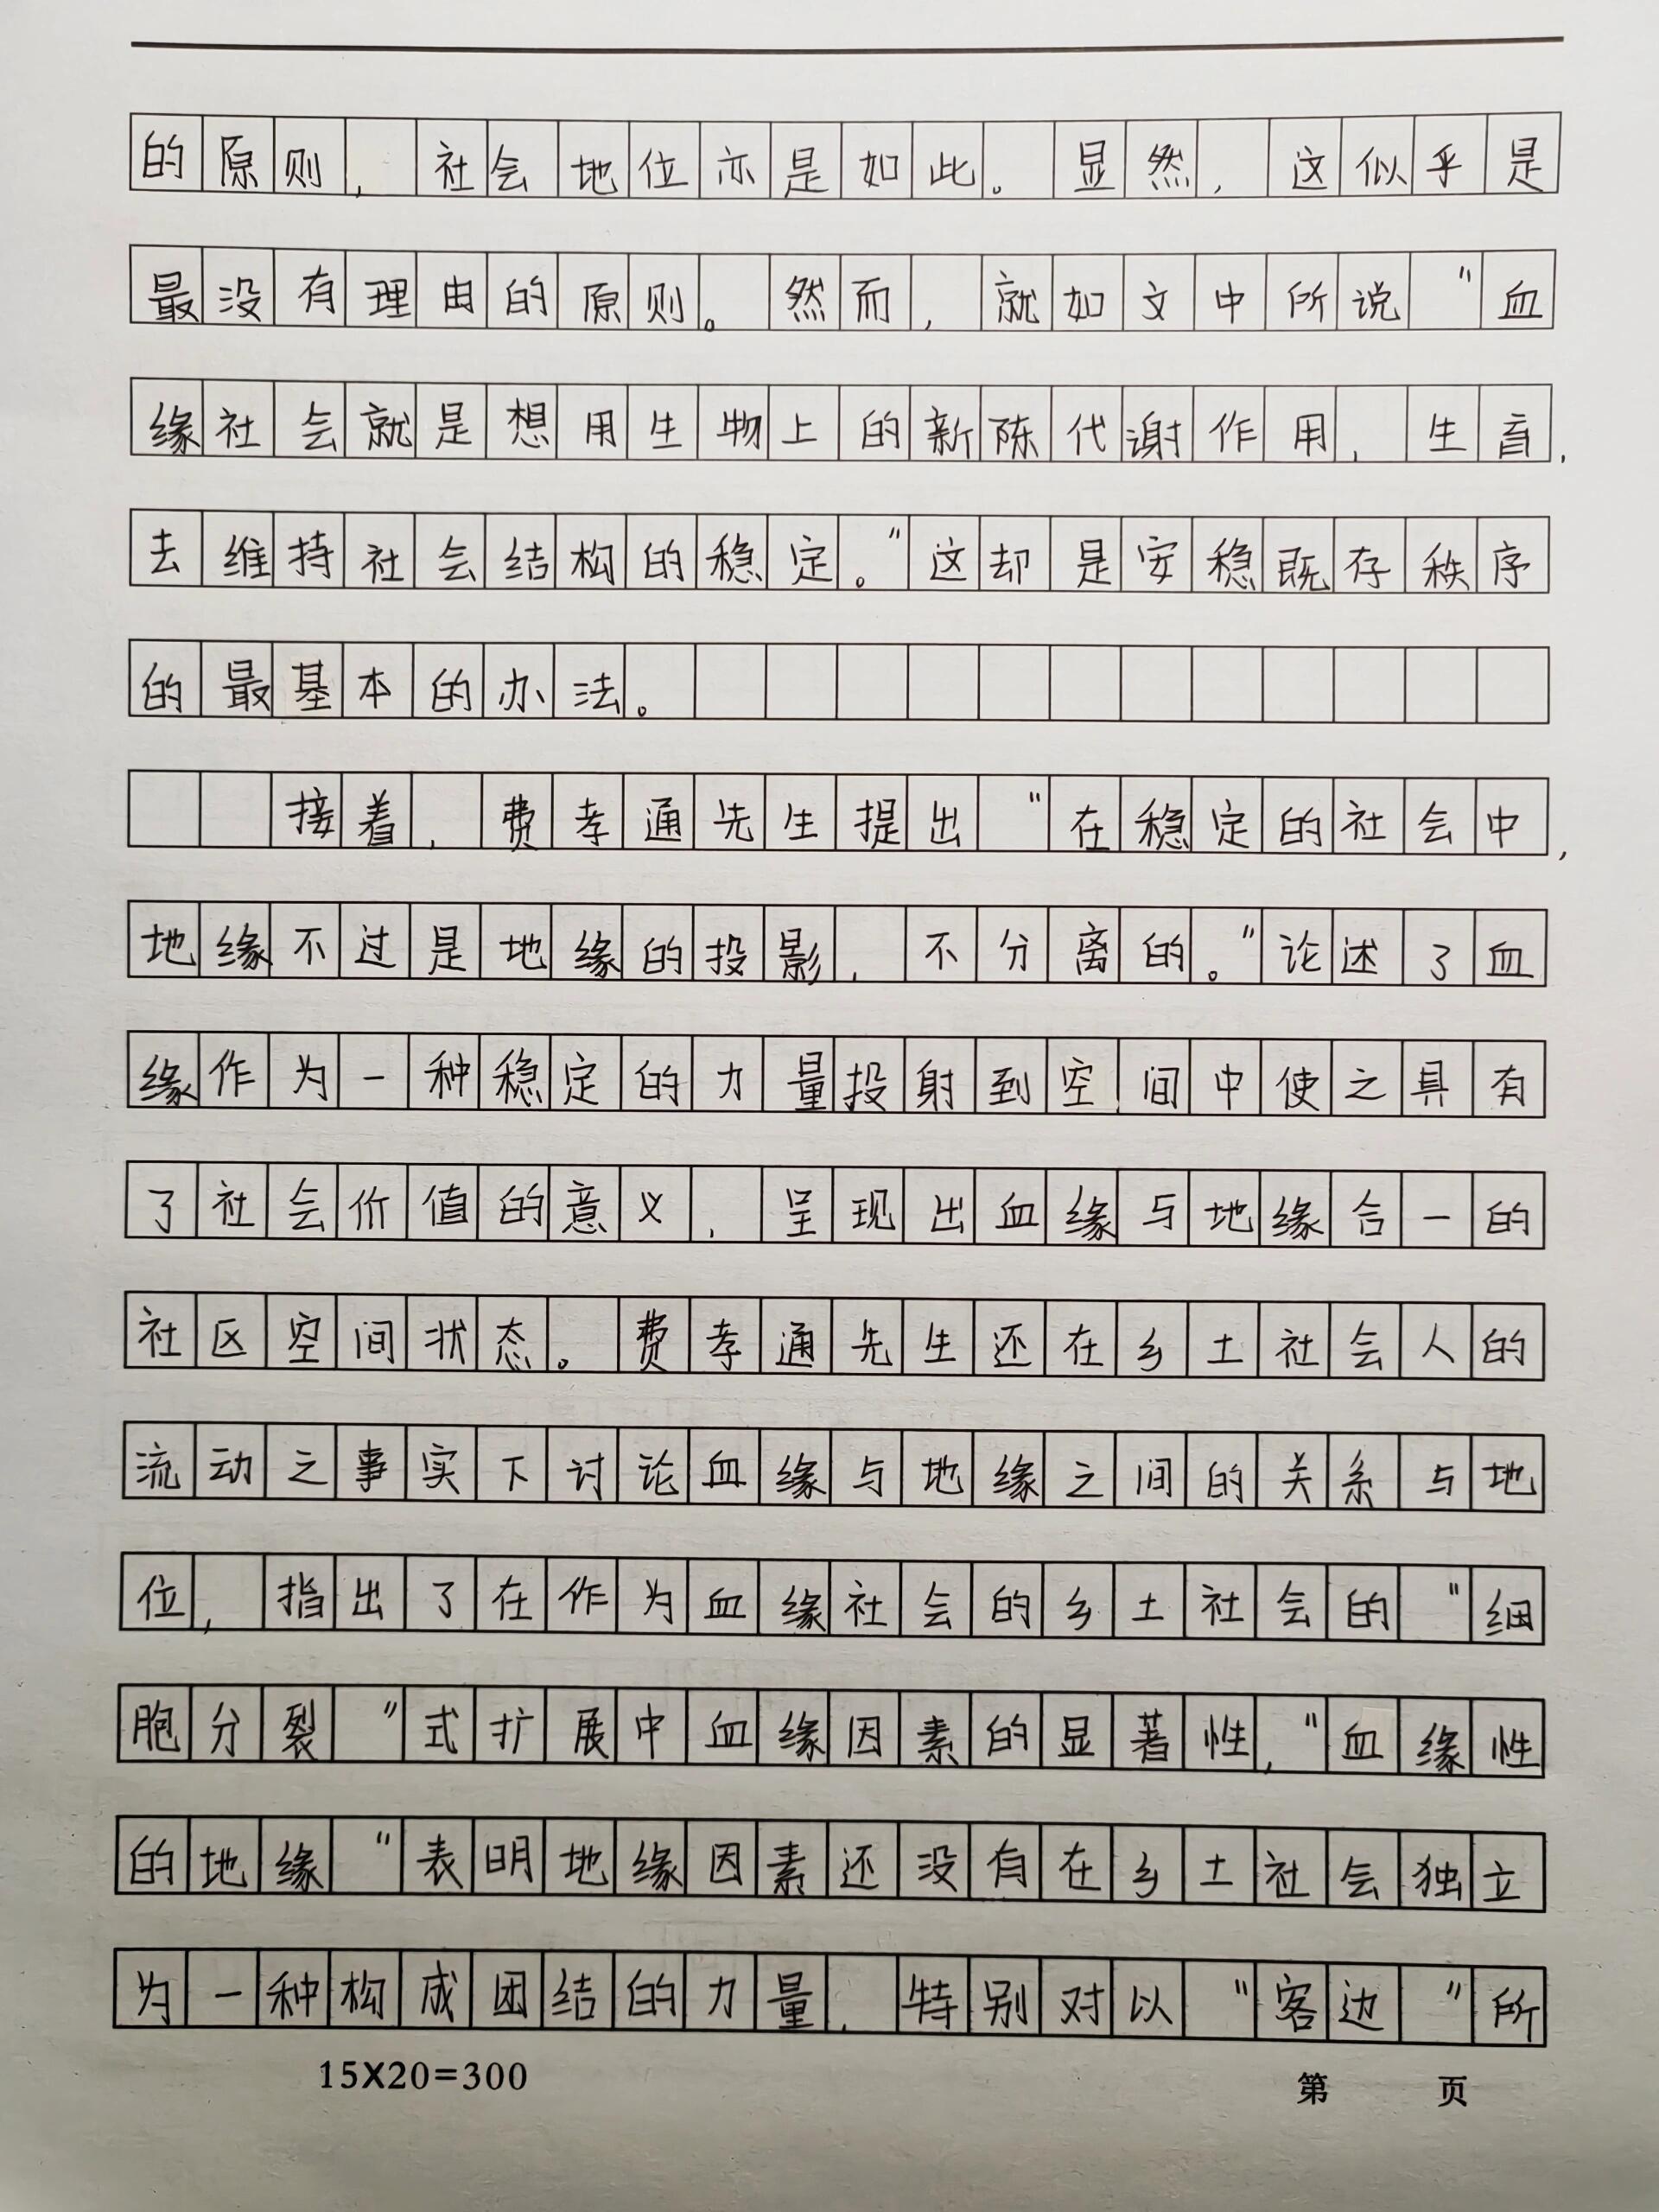 的原则，社会地位亦是如此。显然，这似乎是
最没有理由的原则。然而，就如文中所说“血
缘社会就是想用生物上的新陈代谢作用，生育，
去维持社会结构的稳定。”这却是安稳既存秩序
的最基本的办法。
接着，费孝通先生提出“在稳定的社会中，
地缘不过是地缘的投影，不分离的。”论述了血
缘作为一种稳定的力量投射到空间中使之具有
了社会价值的意义，呈现出血缘与地缘合一的
社区空间状态。费孝通先生还在乡土社会人的
流动之事实下讨论血缘与地缘之间的关系与地
位，指出了在作为血缘社会的乡土社会的“细
胞分裂”式扩展中血缘因素的显著性，“血缘性
的地缘”表明地缘因素还没有在乡土社会独立
为一种构成团结的力量，特别对以“客边”所
15X20=300 第 页